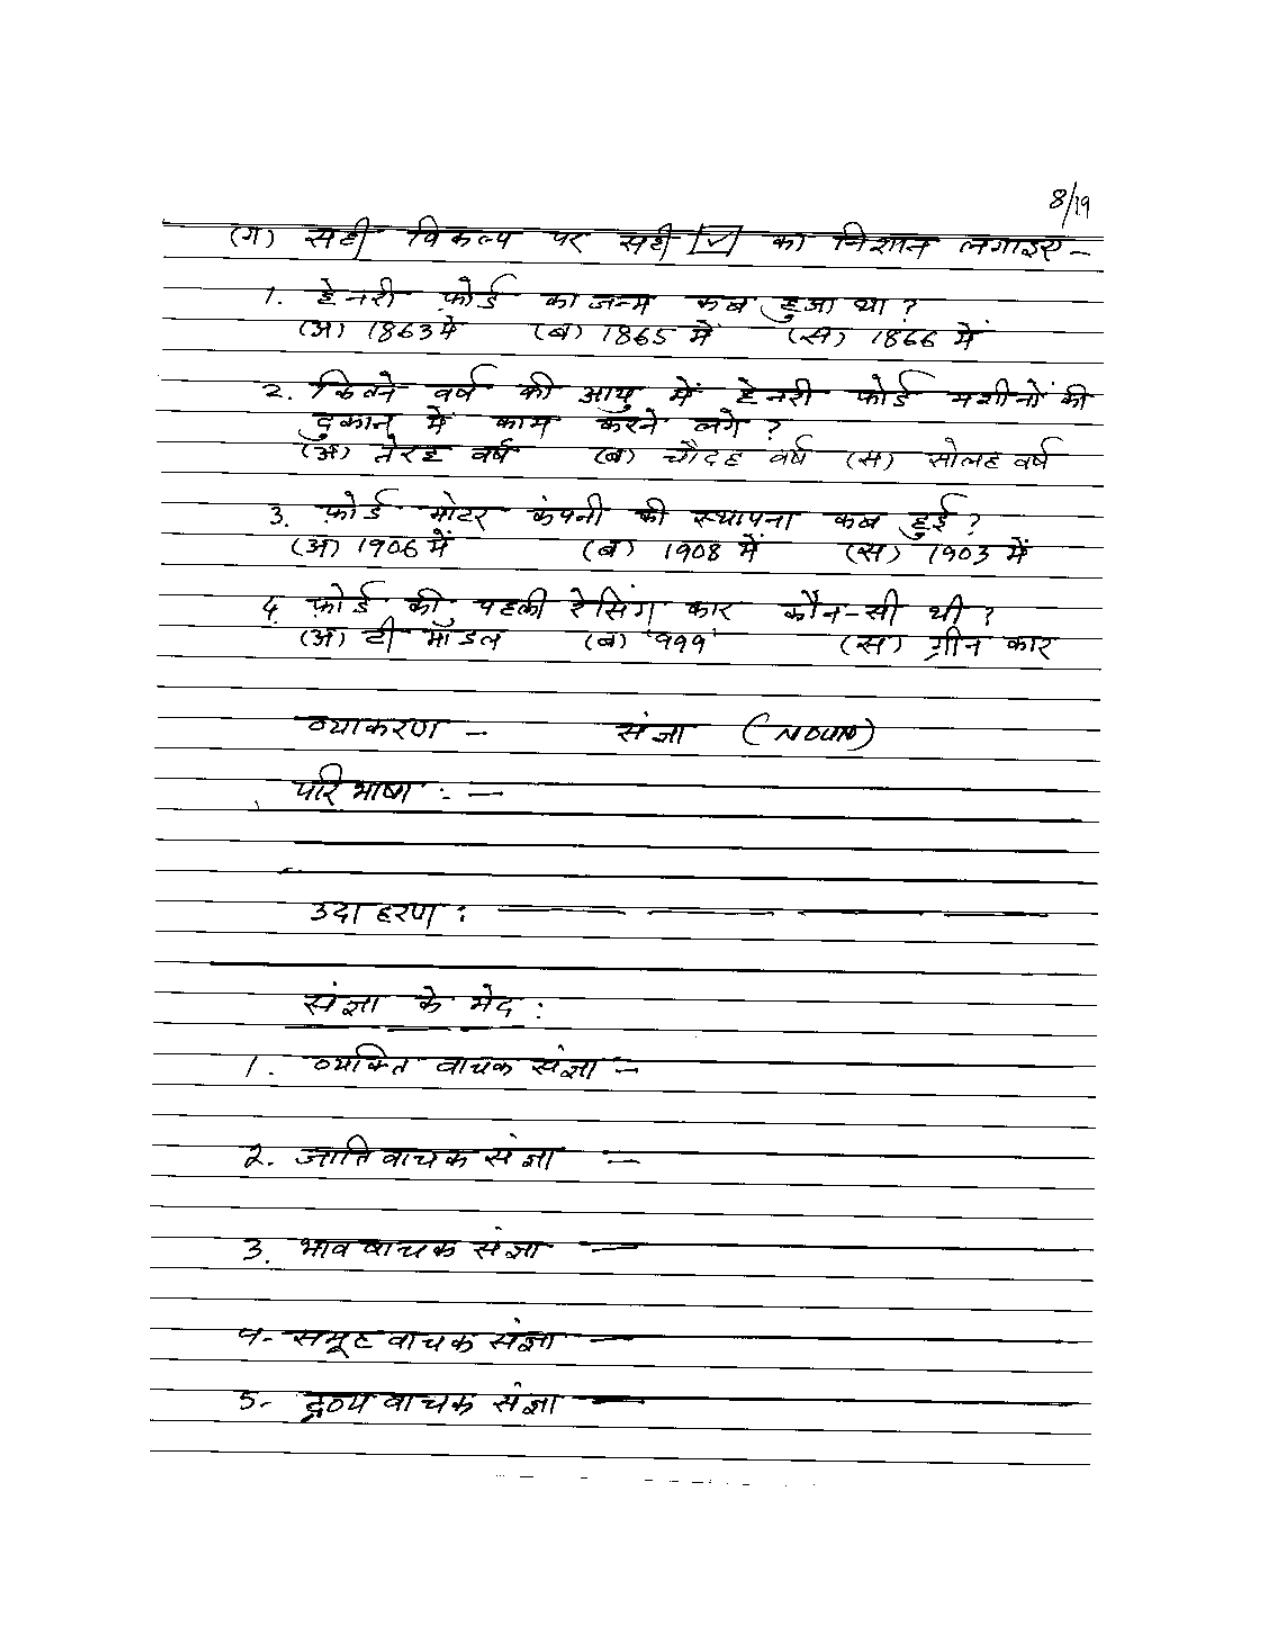 8/19
(ग) सही विकल्प पर सही ✓ का निशान लगाइए -
1. हेनरी फ़ोर्ड का जन्म कब हुआ था ?
(अ) 1863 में (ब) 1865 में (स) 1866 में
2. कितने वर्ष की आयु में हेनरी फोर्ड मशीनों की
दुकान में काम करने लगे ?
(अ) तेरह वर्ष (ब) चौदह वर्ष (स) सोलह वर्ष
3. फ़ोर्ड मोटर कंपनी की स्थापना कब हुई ?
(अ) 1906 में (ब) 1908 में (स) 1903 में
4. फ़ोर्ड की पहली रेसिंग कार कौन-सी थी ?
(अ) टी मॉडल (ब) '999' (स) ग्रीन कार
व्याकरण - संज्ञा (NOUN)
परिभाषा : -
उदाहरण :
संज्ञा के भेद :
1. व्यक्ति वाचक संज्ञा :-
2. जाति वाचक संज्ञा :-
3. भाव वाचक संज्ञा -
4- समूह वाचक संज्ञा -
5- द्रव्य वाचक संज्ञा -